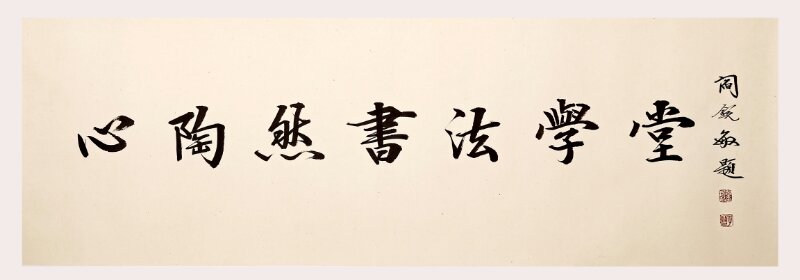 心陶然書法學堂
閻銳敏題